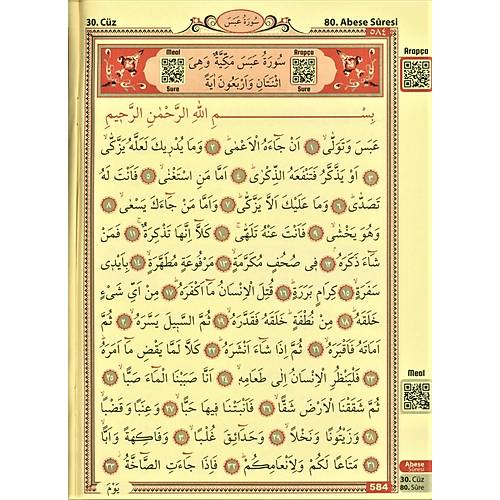 30. Cüz
سُورَةُ عَبَسَ
80. Abese Sûresi
٥٨٤
Meal
Arapça
سُورَةُ عَبَسَ مَكِّيَّةٌ وَهِىَ
اثْنَتَانِ وَاَرْبَعُونَ اٰيَةً
Sure
Sure
Arapça
بِسْمِ اللّٰهِ الرَّحْمٰنِ الرَّحٖيمِ
عَبَسَ وَتَوَلّٰىۙ ﴿١﴾ اَنْ جَٓاءَهُ الْاَعْمٰىۜ ﴿٢﴾ وَمَا يُدْرٖيكَ لَعَلَّهُ يَزَّكّٰىۙ
﴿٣﴾ اَوْ يَذَّكَّرُ فَتَنْفَعَهُ الذِّكْرٰىۜ ﴿٤﴾ اَمَّا مَنِ اسْتَغْنٰىۙ ﴿٥﴾ فَاَنْتَ لَهُ
تَصَدّٰىۜ ﴿٦﴾ وَمَا عَلَيْكَ اَلَّا يَزَّكّٰىۜ ﴿٧﴾ وَاَمَّا مَنْ جَٓاءَكَ يَسْعٰىۙ ﴿٨﴾
وَهُوَ يَخْشٰىۙ ﴿٩﴾ فَاَنْتَ عَنْهُ تَلَهّٰىۚ ﴿١٠﴾ كَلَّٓا اِنَّهَا تَذْكِرَةٌۚ ﴿١١﴾ فَمَنْ
شَٓاءَ ذَكَرَهُۢ ﴿١٢﴾ فٖى صُحُفٍ مُكَرَّمَةٍۙ ﴿١٣﴾ مَرْفُوعَةٍ مُطَهَّرَةٍۙ ﴿١٤﴾ بِاَيْدٖى
سَفَرَةٍۙ ﴿١٥﴾ كِرَامٍ بَرَرَةٍۜ ﴿١٦﴾ قُتِلَ الْاِنْسَانُ مَٓا اَكْفَرَهُۜ ﴿١٧﴾ مِنْ اَىِّ شَىْءٍ
خَلَقَهُۜ ﴿١٨﴾ مِنْ نُطْفَةٍۜ خَلَقَهُ فَقَدَّرَهُۙ ﴿١٩﴾ ثُمَّ السَّبٖيلَ يَسَّرَهُۙ ﴿٢٠﴾ ثُمَّ
اَمَاتَهُ فَاَقْبَرَهُۙ ﴿٢١﴾ ثُمَّ اِذَا شَٓاءَ اَنْشَرَهُۜ ﴿٢٢﴾ كَلَّا لَمَّا يَقْضِ مَٓا اَمَرَهُۜ
﴿٢٣﴾ فَلْيَنْظُرِ الْاِنْسَانُ اِلٰى طَعَامِهٖۙ ﴿٢٤﴾ اَنَّا صَبَبْنَا الْمَٓاءَ صَبًّاۙ ﴿٢٥﴾
ثُمَّ شَقَقْنَا الْاَرْضَ شَقًّاۙ ﴿٢٦﴾ فَاَنْبَتْنَا فٖيهَا حَبًّاۙ ﴿٢٧﴾ وَعِنَبًا وَقَضْبًاۙ
﴿٢٨﴾ وَزَيْتُونًا وَنَخْلًاۙ ﴿٢٩﴾ وَحَدَٓائِقَ غُلْبًاۙ ﴿٣٠﴾ وَفَاكِهَةً وَاَبًّاۙ
﴿٣١﴾ مَتَاعًا لَكُمْ وَلِاَنْعَامِكُمْۜ ﴿٣٢﴾ فَاِذَا جَٓاءَتِ الصَّٓاخَّةُۘ ﴿٣٣﴾
يَوْمَ
584
Meal
Abese
Sûresi
30. Cüz
80. Sûre